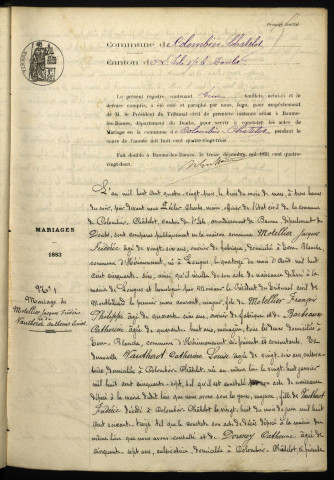 Premier feuillet
Commune de Colombier Chatelot
Canton de L'Isle s/ le Doubs
Le présent registre, contenant feuillets, premier et
dernier compris, a été coté et paraphé par nous, Juge, pour empêchement
de M. le Président du Tribunal civil de première instance séant à Baume-
les-Dames, département du Doubs, pour servir à constater les actes de
Mariage en la commune de Colombier Chatelot, pendant le
cours de l'année mil huit cent quatre-vingt-trois.
Fait double à Baume-les-Dames, le trente décembre, mil huit cent quatre-
vingt-deux.
MARIAGES
1883
N° 1
Mariage de
Motellier Jacques Frédéric
et de
Vautherot Catherine Louise
L'an mil huit cent quatre vingt trois, le trois du mois de mars, à trois heures
du soir, par devant nous Charles, maire, officier de l'état civil de la commune
de Colombier Châtelot, canton de l'Isle, arrondissement de Baume, département du
Doubs, sont comparus publiquement en la maison commune Motellier Jacques
Frédéric âgé de vingt sept ans, ouvrier de fabrique, domicilié à
commune d'Hérimoncourt, né à le quatorze du mois d'août mil huit
cent cinquante cinq, ainsi qu'il résulte de son acte de naissance délivré à la
mairie de et homologué par Monsieur le Président du Tribunal civil de
Montbéliard le premier mars courant, majeur, fils de Motellier François
Philippe âgé de quarante six ans, ouvrier de fabrique et de
Catherine âgée de quarante huit ans, ménagère, tous les deux domiciliés à
commune d'Hérimoncourt ici présents et consentants. Et
demoiselle Vautherot Catherine Louise âgée de vingt six ans, cultiva-
trice domiciliée à Colombier Châtelot, née au même lieu le vingt huit janvier
mil huit cent cinquante sept, tel qu'il est constaté par son acte de naissance
déposé à la mairie dudit lieu que nous avons sous les yeux, majeure, fille de Vautherot
Frédéric décédé à Colombier Châtelot le vingt huit du mois de juin mil huit
cent soixante tel que le constate son acte de décès déposé à la mairie du
même lieu que nous avons consulté et de Catherine âgée de
cinquante sept ans, cultivatrice, domiciliée à Colombier Châtelot, ici présente